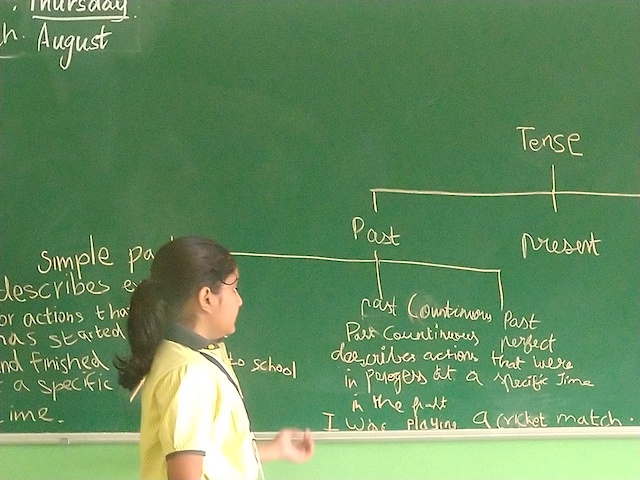 Thursday
August
Tense
Past present
Simple
describes
or actions
has started
and finished to school
a specific
ime.
past Countinous Past
Past Countinuous perfect
describes actions that were
in progess at a specific time
in the
I was playing a cricket match.